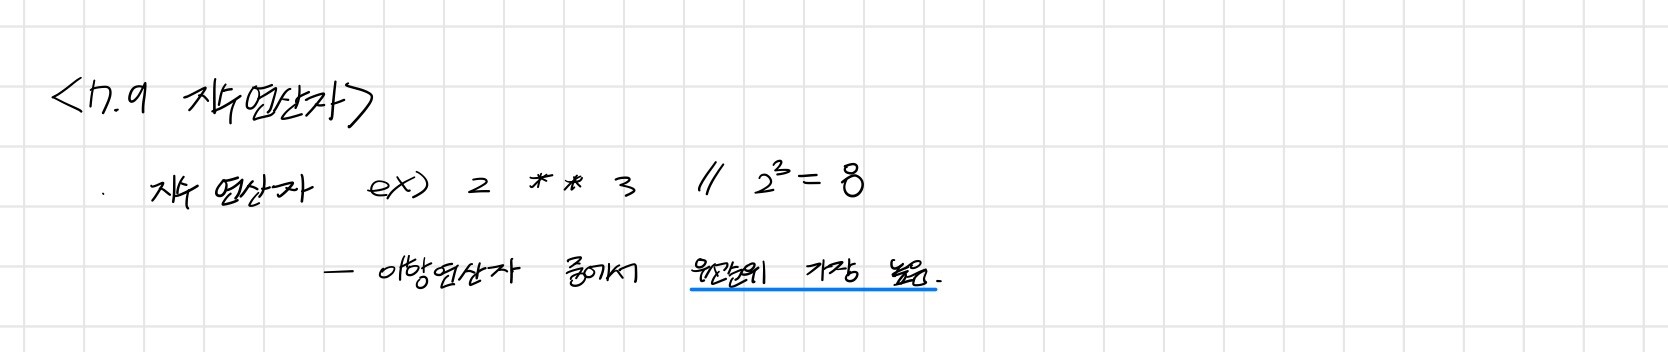 <7.9 지수연산자>
· 지수 연산자 ex) 2 * * 3 // 2³ = 8
— 이항연산자 중에서 우선순위 가장 높음.